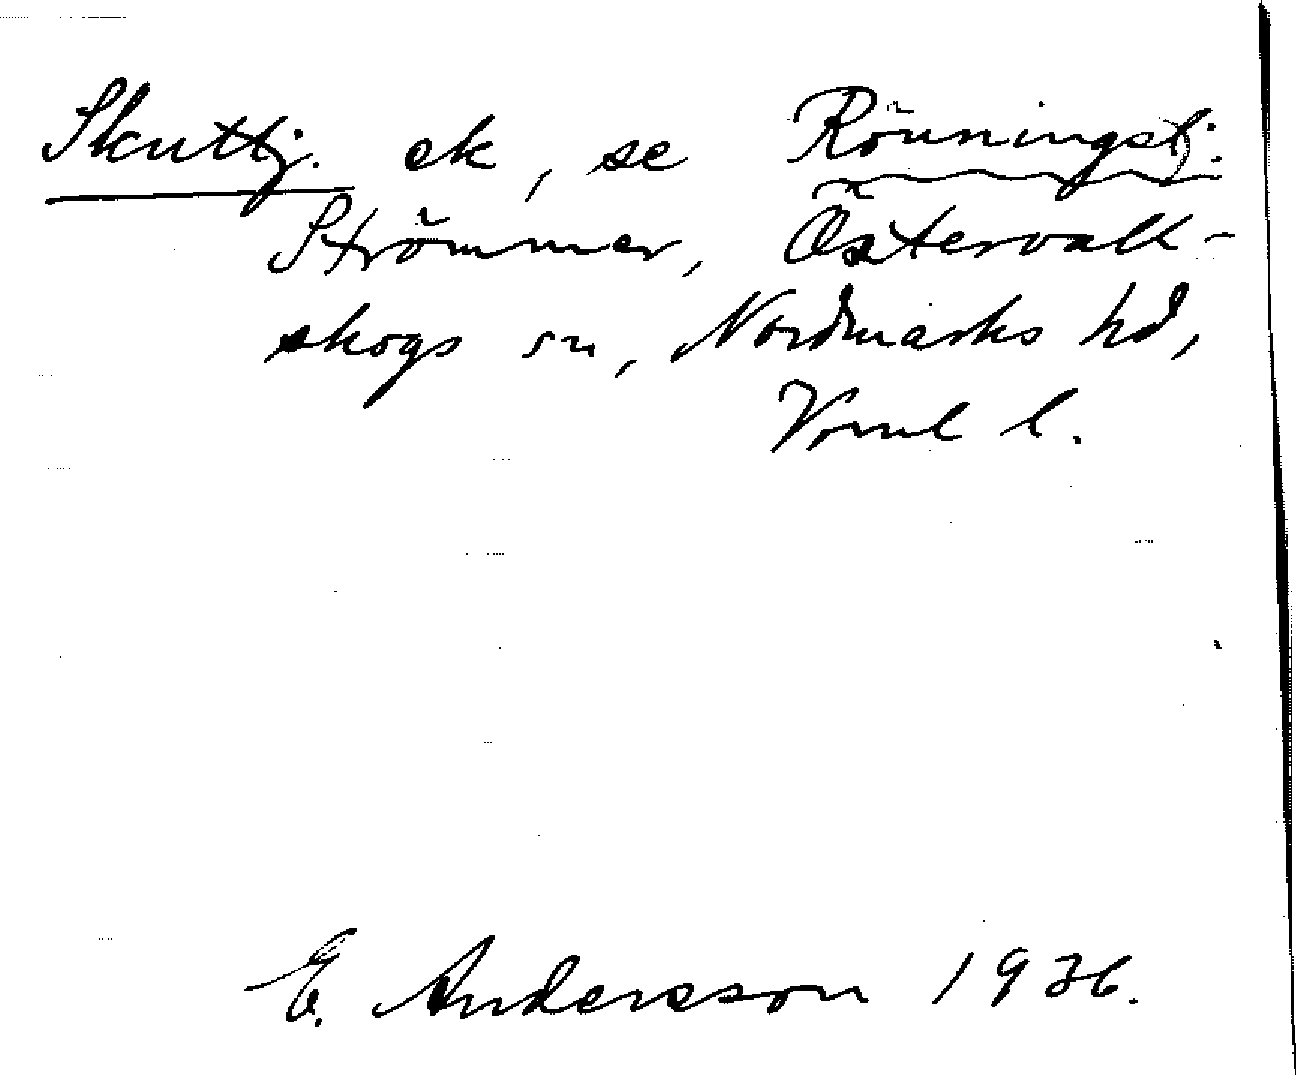 Skuttj. ek, se Rönningstj.
Strömmer, Östervall-
skogs sn, Nordmarks hd,
Verml l.
E. Andersson 1936.